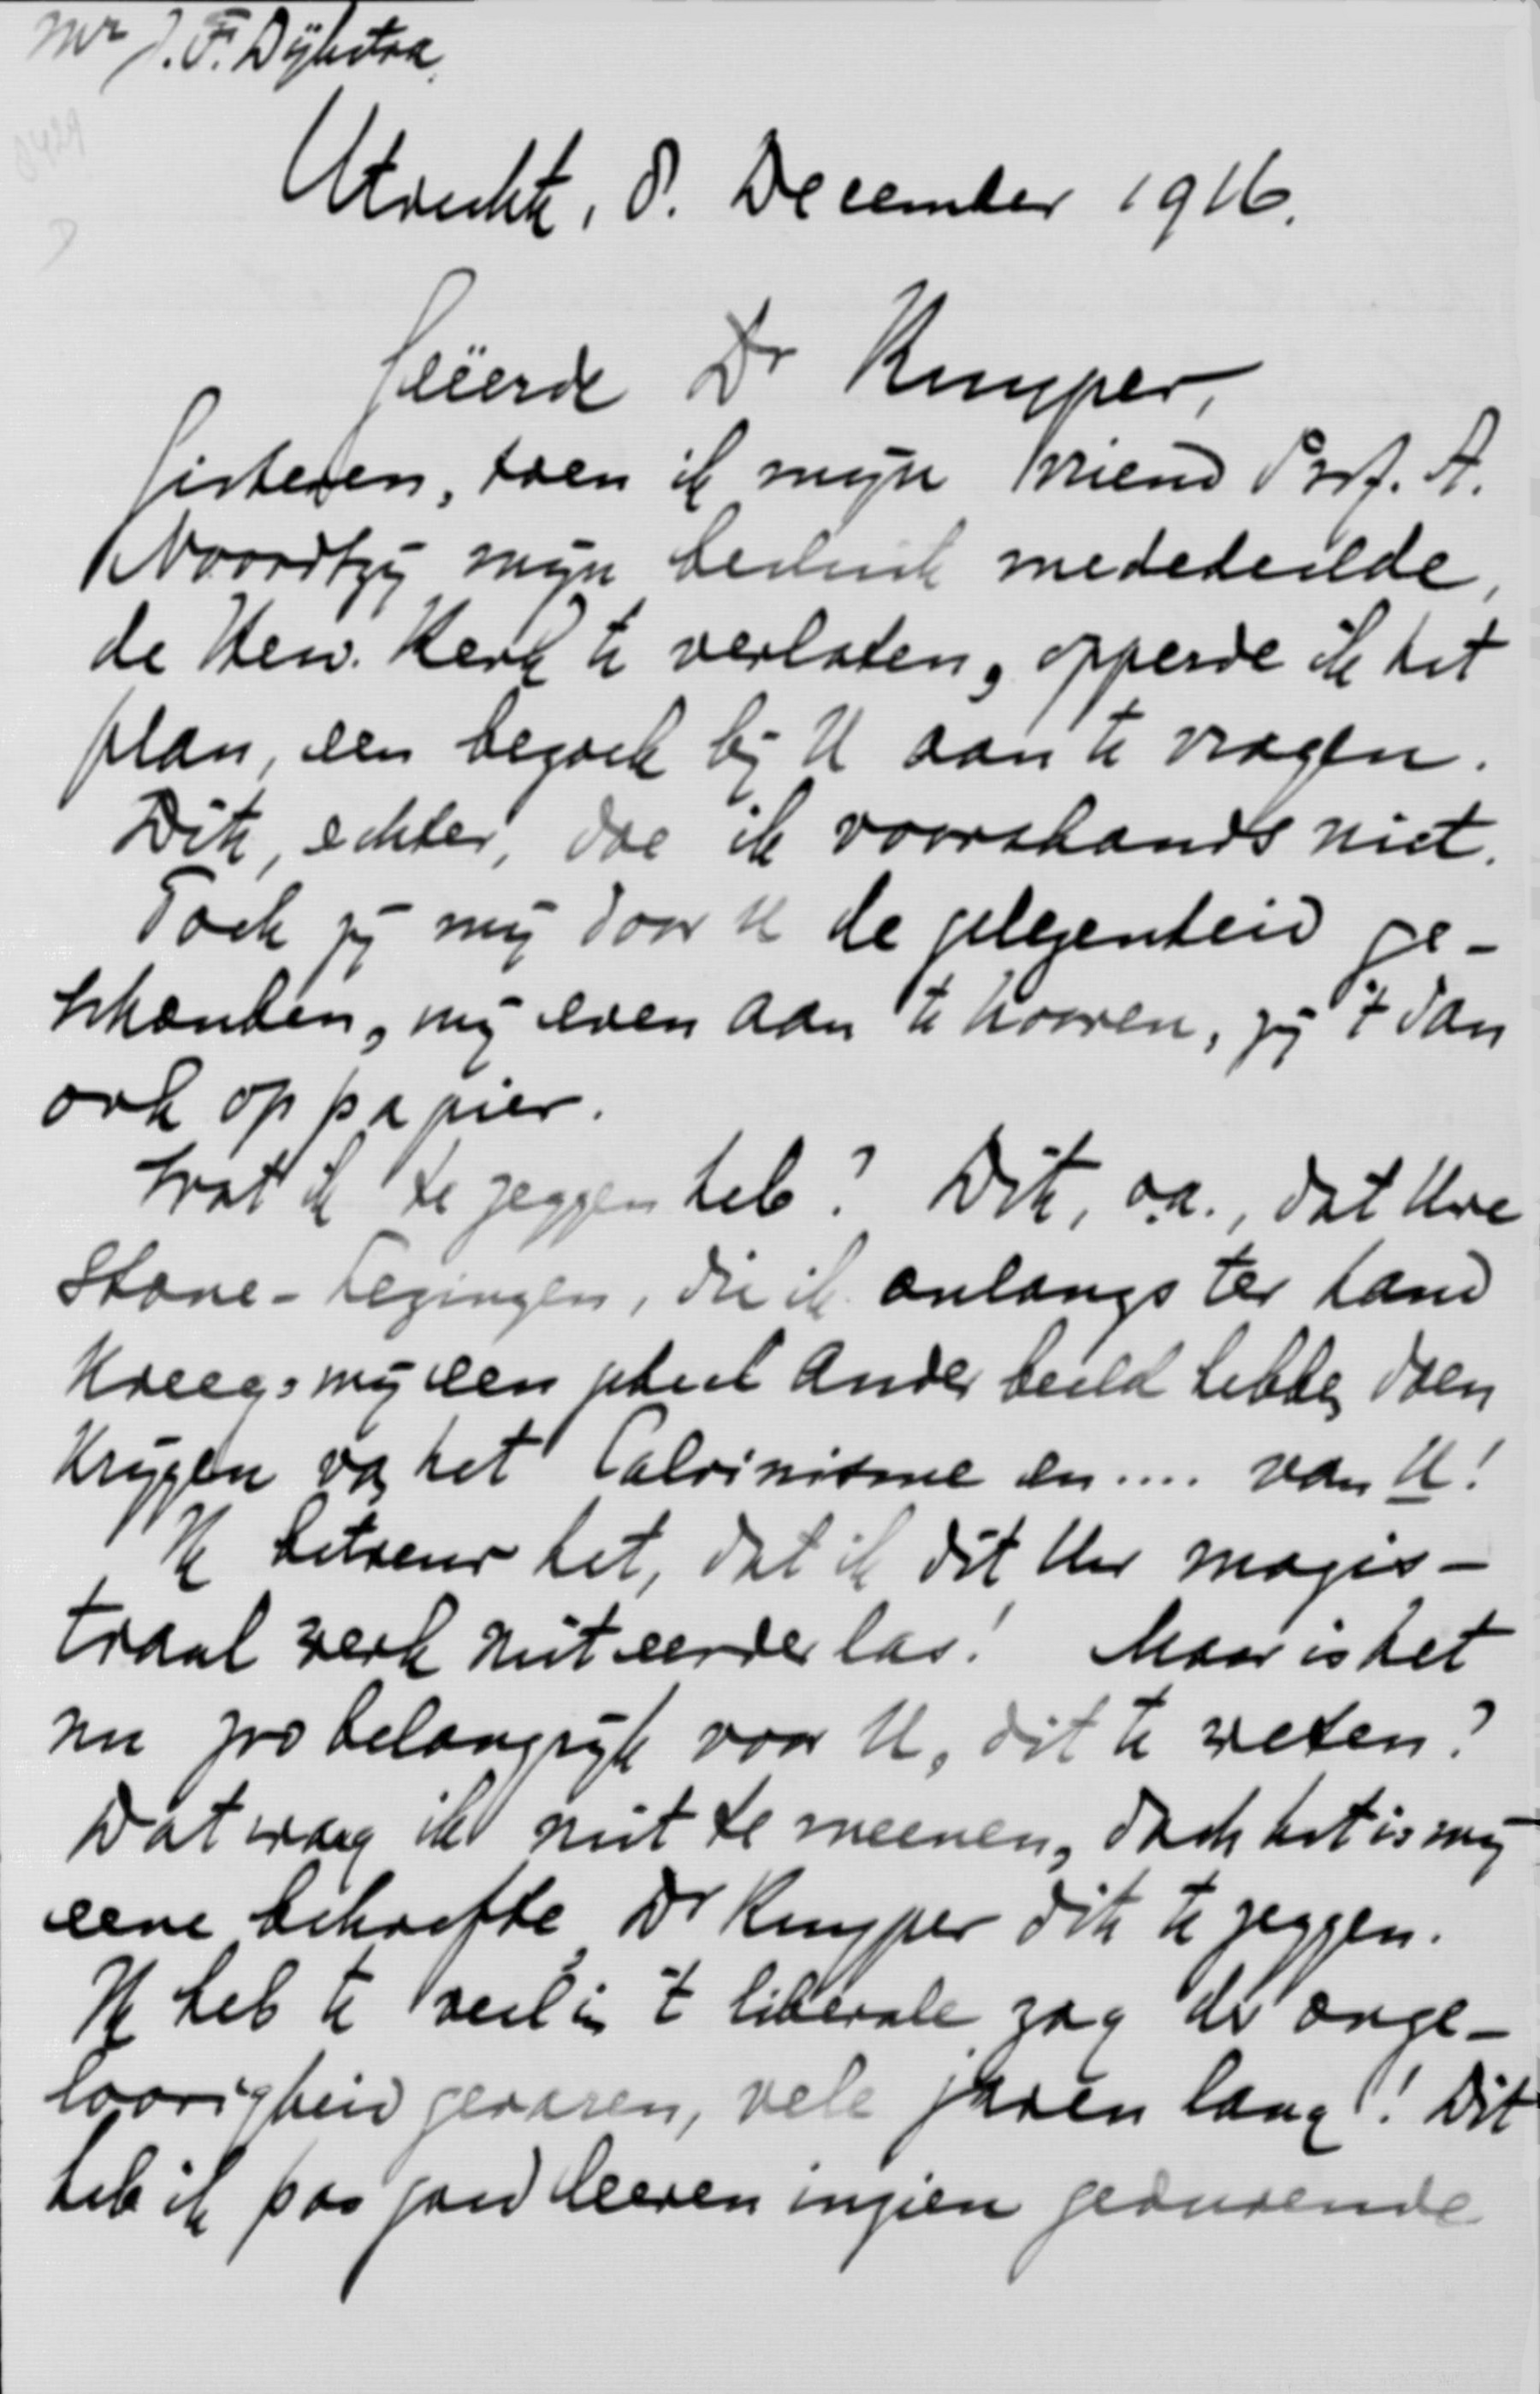 Mr J. F. Dijkstra.
8429
D
Utrecht, 8. December 1916.
Geëerde Dr Kuyper,
Gisteren, toen ik mijn vriend Prof. A.
Noordtzij mijn besluit mededeelde,
de Herv. Kerk te verlaten, opperde ik het
plan, een bezoek bij U aan te vragen.
Dit, echter, doe ik voorshands niet.
Toch zij mij door U de gelegenheid ge-
schonken, mij even aan te hooren, zij 't dan
ook op papier.
Wat ik te zeggen heb? Dit, o.a., dat Uwe
Stone-lezingen, die ik onlangs ter hand
kreeg, mij een geheel ander beeld hebben doen
krijgen van het Calvinisme en.... van U!
Ik betreur het, dat ik dit Uw magis-
traal werk niet eerder las! Maar is het
nu zoo belangrijk voor U, dit te weten?
Dat waag ik niet te meenen, doch het is mij
eene behoefte Dr Kuyper dit te zeggen.
Ik heb te veel in 't liberale zog der onge-
loovigheid gevaren, vele jaren lang! Dit
heb ik pas goed leeren inzien gedurende